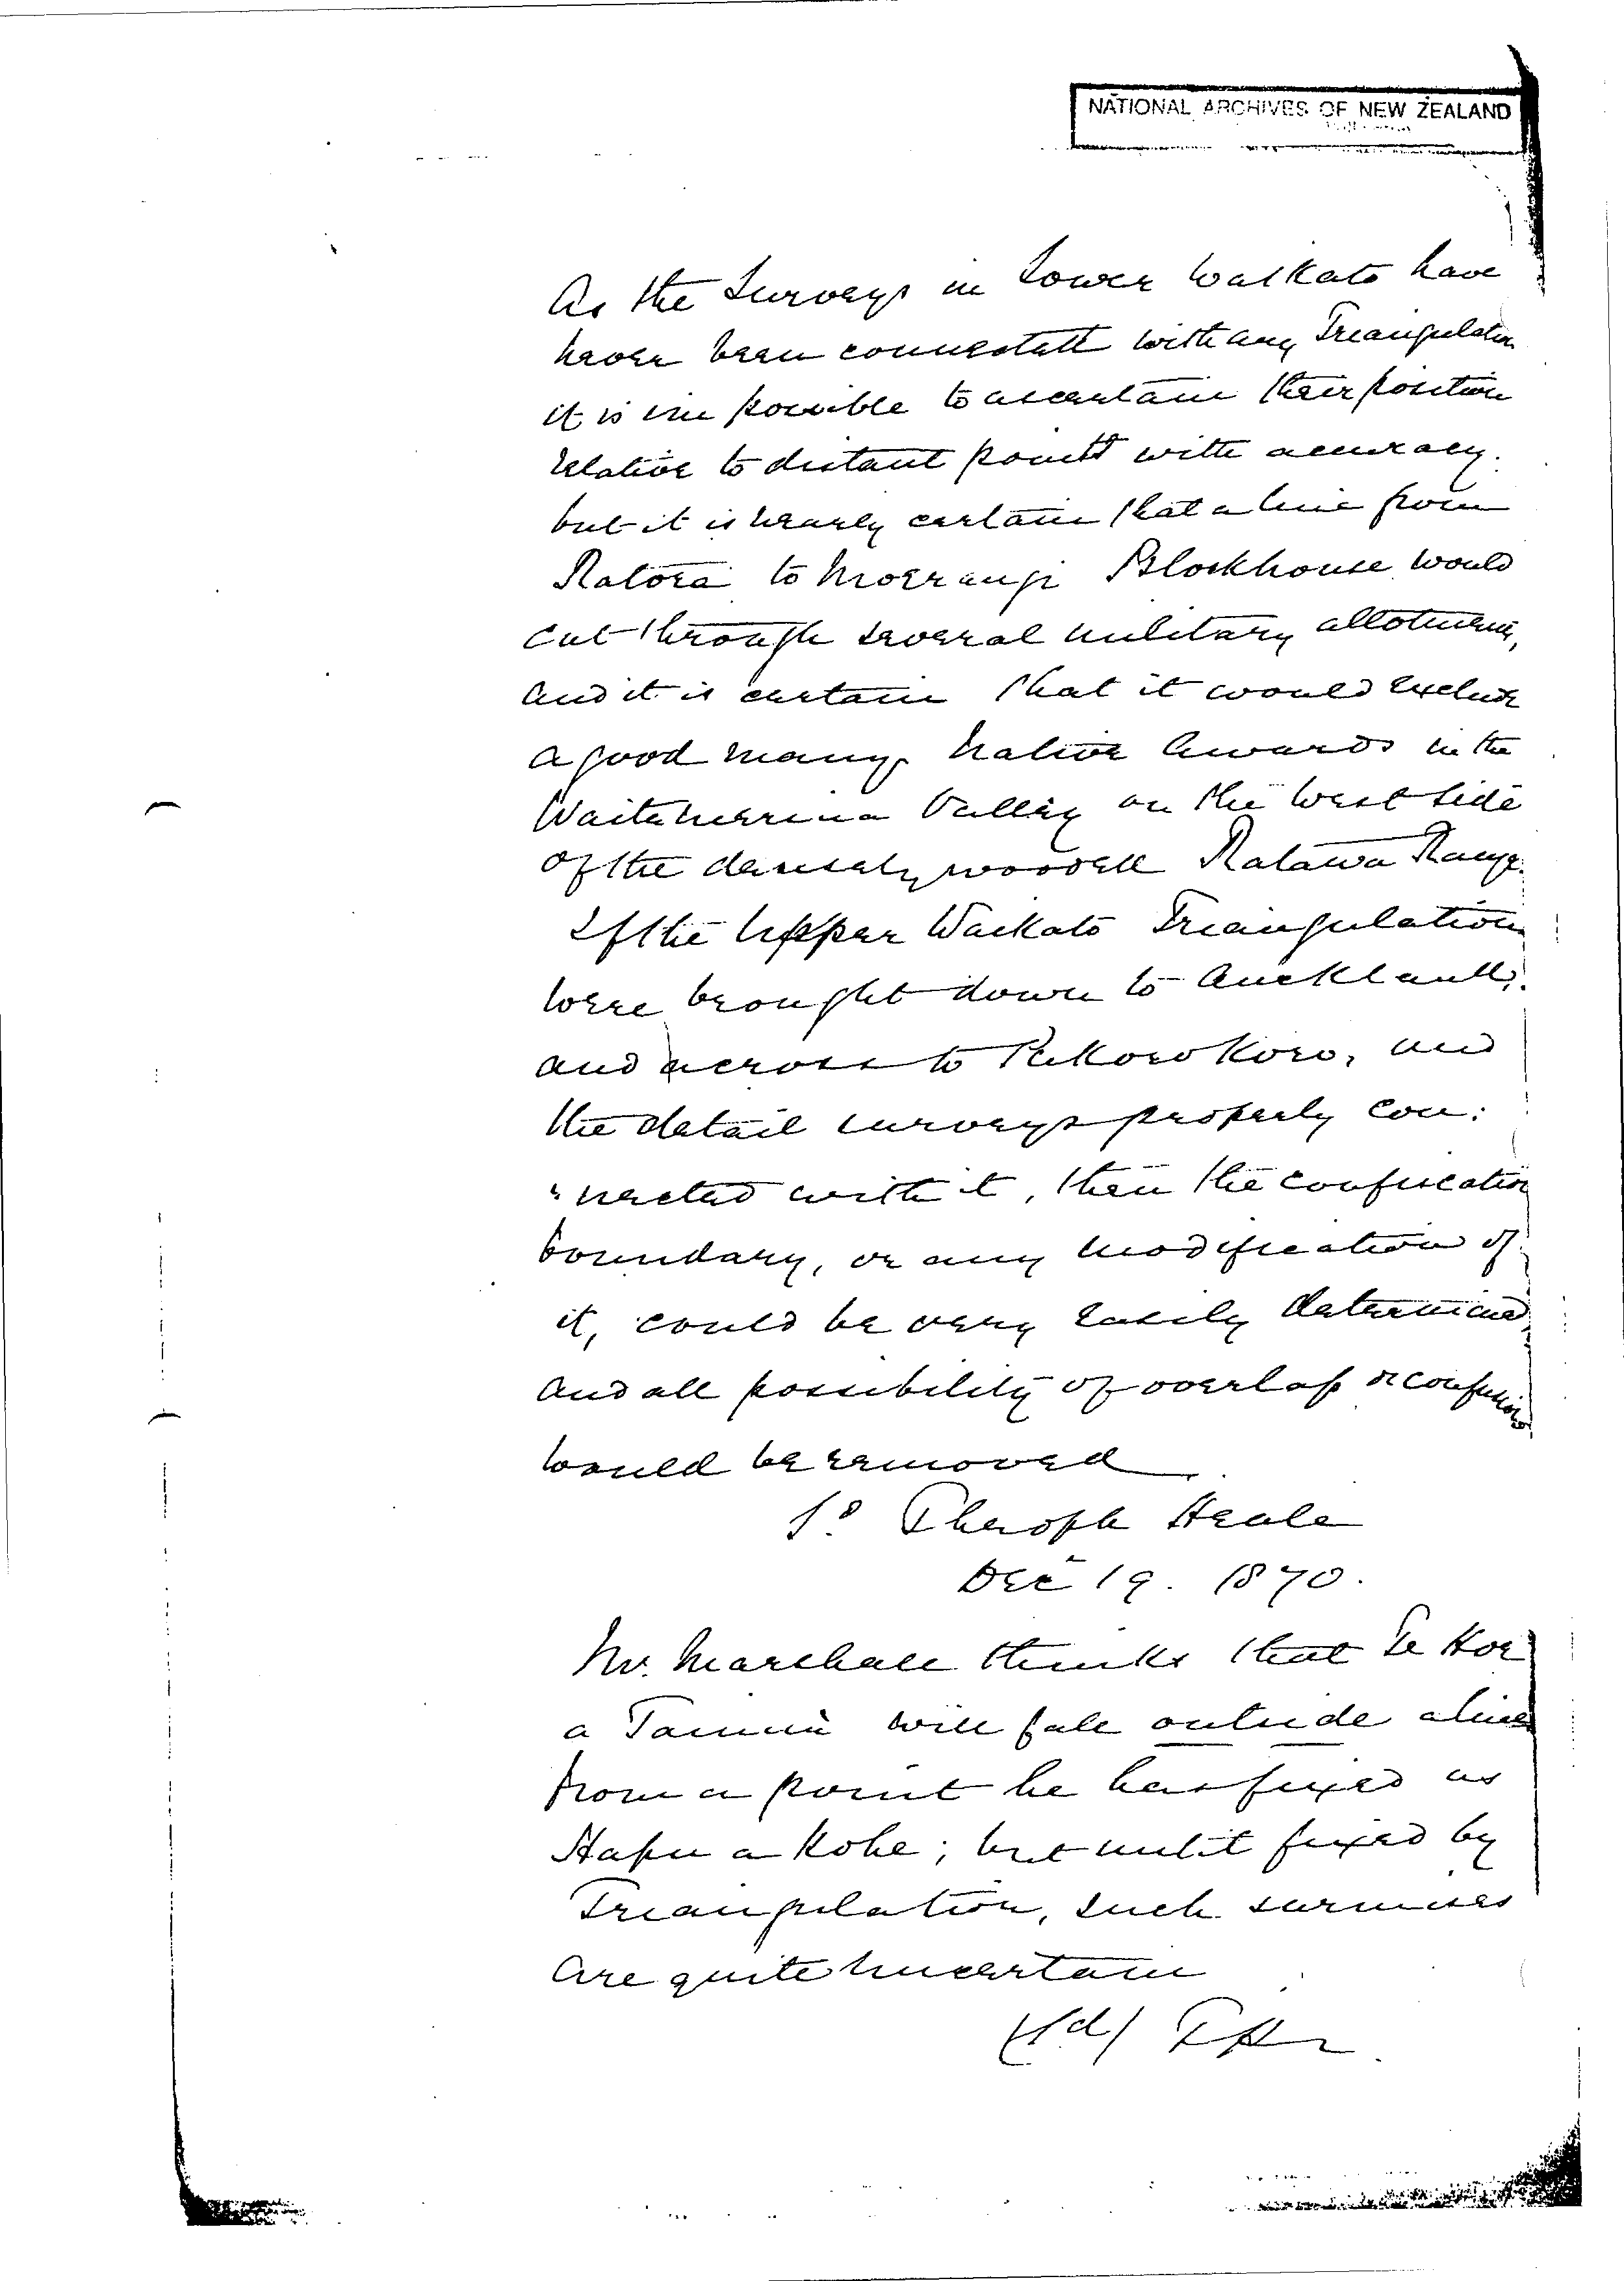 NATIONAL ARCHIVES OF NEW ZEALAND
As the Surveys in Lower Waikato have
never been connected with any Triangulation
it is impossible to ascertain their position
relative to distant points with accuracy.
but it is nearly certain that a line from
Ratora to Moerangi Blockhouse would
cut through several military allotments,
and it is certain that it would exclude
a good many Native Awards in the
Valley on the West side
of the densely wooded Range.
If the Upper Waikato Triangulation
were brought down to Auckland,
and across to Pukorokoro, and
the detail surveys properly con:
:nected with it, then the confiscation
boundary, or any modification of
it, could be very easily determined
and all possibility of overlap or confusion
would be removed
Sd Theoph Heale
Dec 19. 1870.
Mr. Marshall thinks that Te Hoe
a Tainui will fall outside a line
from a point he has fixed as
Hapu a Kohe; but until fixed by
Triangulation, such surmises
are quite uncertain
(Sd) TH